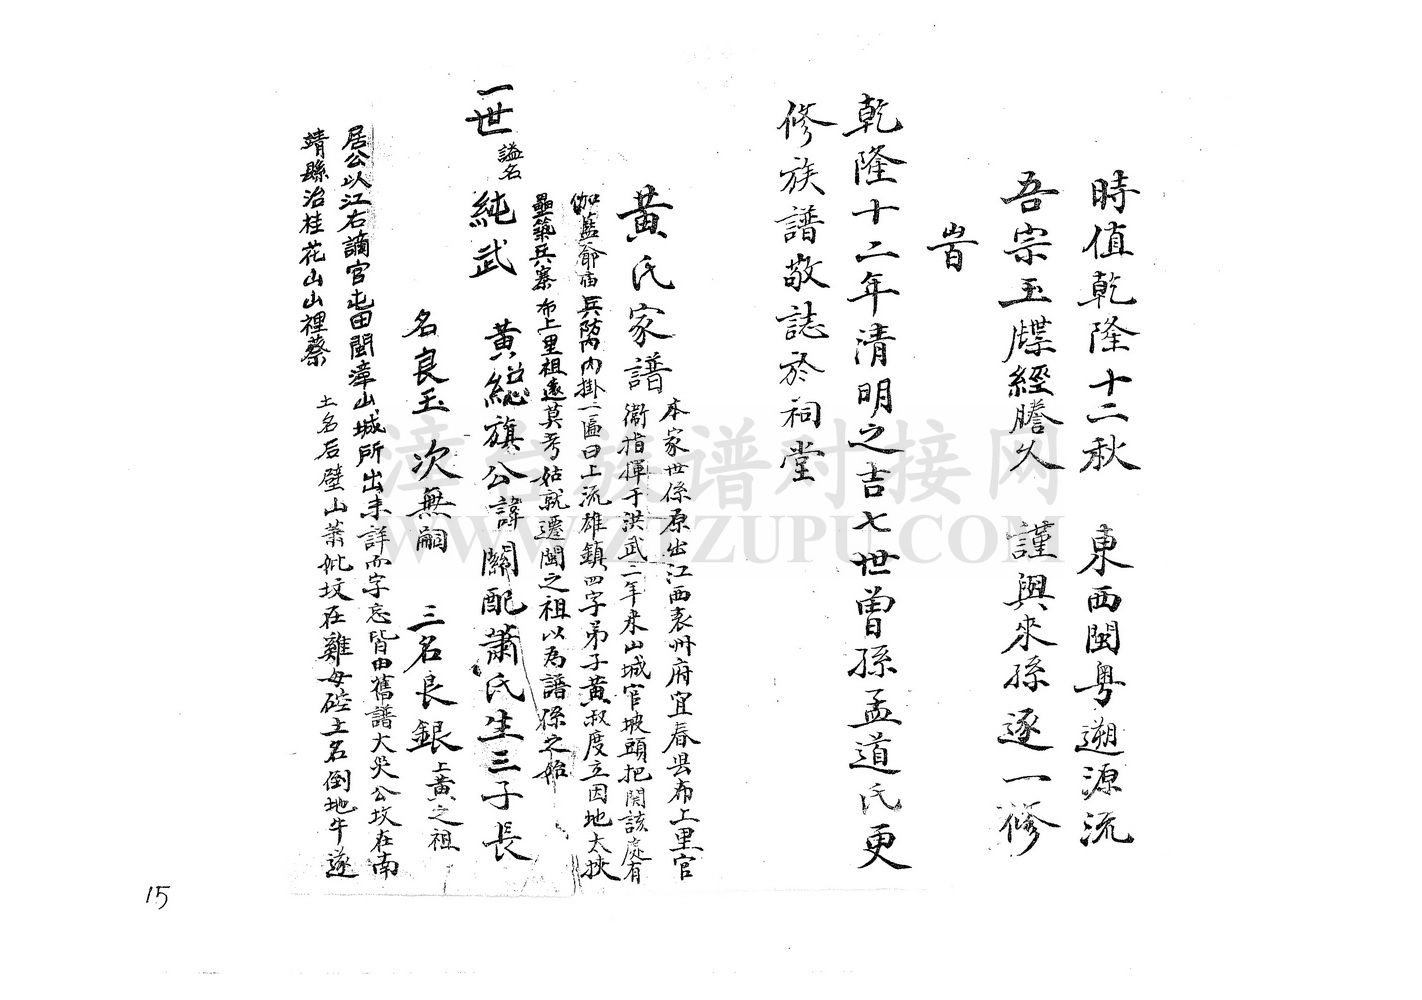 時值乾隆十二秋 東西閩粵遡源流
吾宗玉牒經謄久 謹與來孫逐一修
旹
乾隆十二年清明之吉七世曾孫孟道氏更
修族譜敬誌於祠堂
黃氏家譜 本家世係原出江西袁州府宜春县布上里官
衞指揮于洪武二年來山城官坡頭把関該處有
伽藍爺庙兵防內掛二匾曰上流雄鎮四字弟子黃叔度立因地太挾
壘築兵寨布上里祖遠莫考姑就遷閩之祖以為譜係之始
一世 謚名 純武 黃總旗公諱關配蕭氏生三子長
名良玉次無嗣 三名良銀 上黃之祖
居公以江右謫官屯田閩漳山城所出未詳而字忘皆由舊譜大災公坟在南
靖縣治桂花山山裡蔡 土名后壁山蕭妣坟在雞母硿土名倒地牛遂
漳台族谱对接网
WWW.ZTZUPU.COM
15